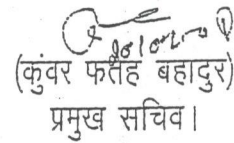 (कुंवर फतेह बहादुर)
प्रमुख सचिव।